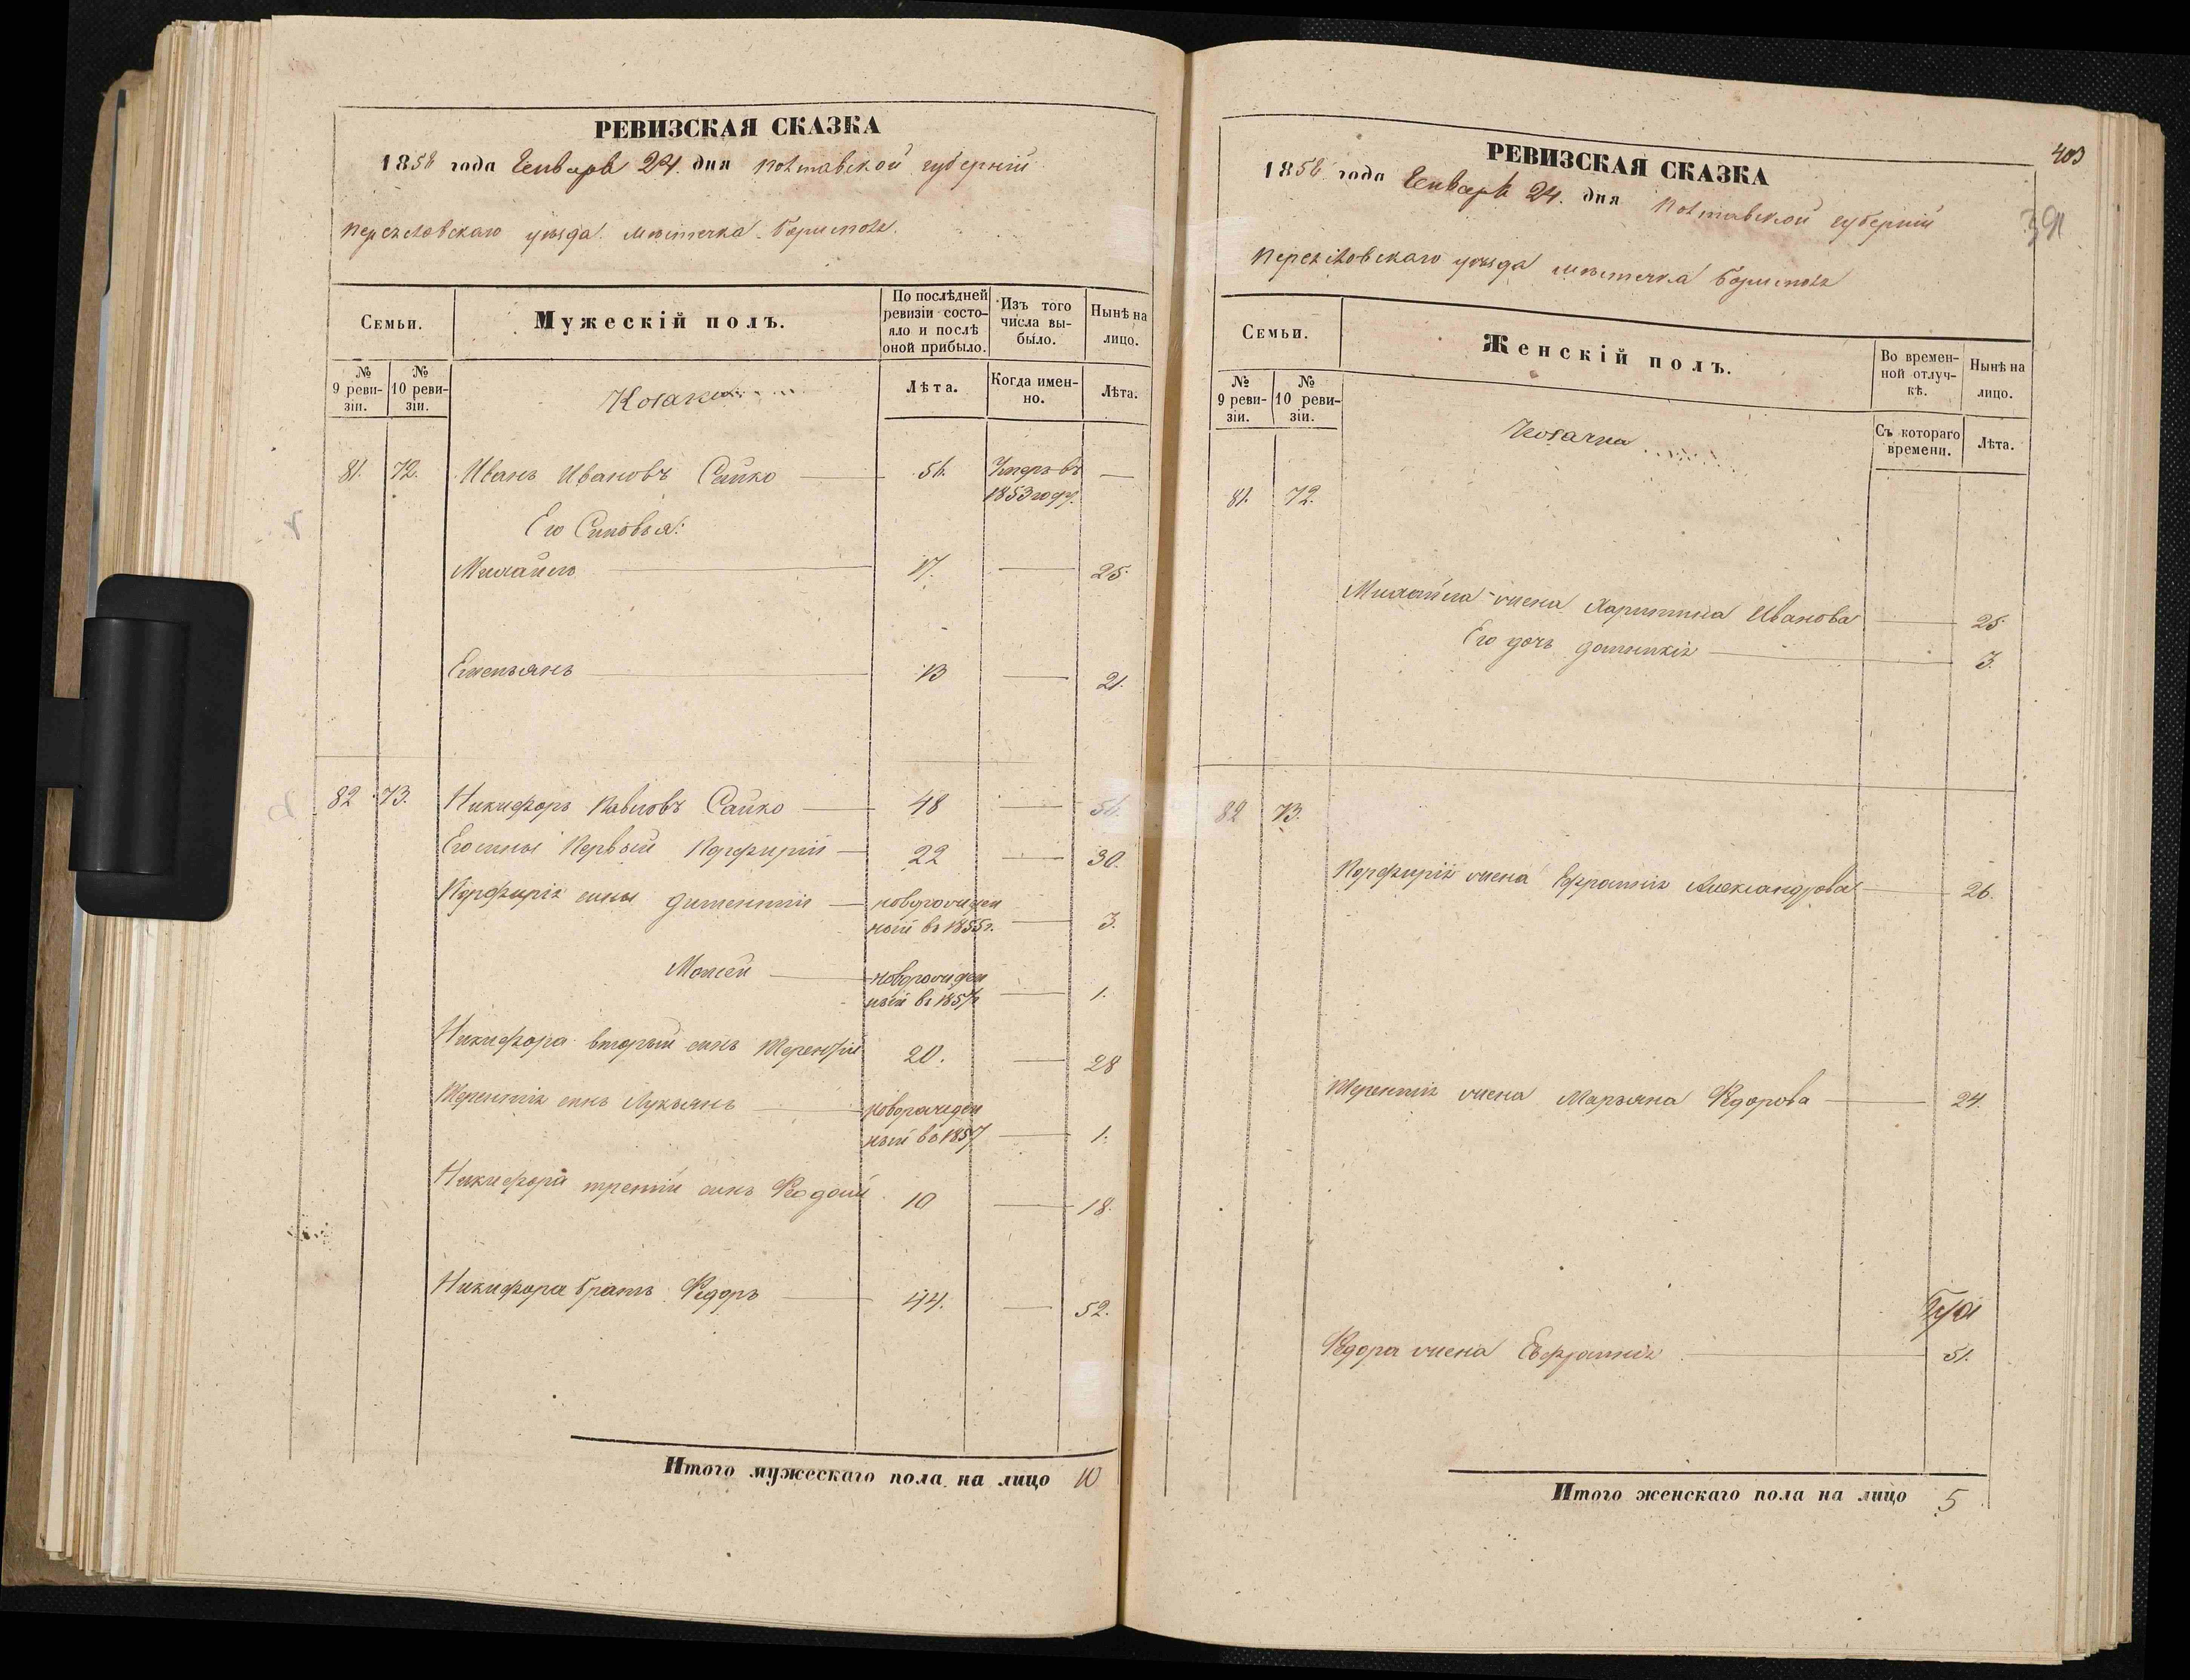 РЕВИЗСКАЯ СКАЗКА
1858 года Генваря 24. дня Полтавской губерніи
Переяславскаго уѣзда мѣстечка Борисполя
Семьи.
Мужескій полъ.
По послѣдней ревизіи состояло и послѣ оной прибыло.
Изъ того числа выбыло.
Нынѣ на лицо.
№ 9 ревизіи.
№ 10 ревизіи.
Козаки
Лѣта.
Когда именно.
Лѣта.
81. 72. Иванъ Ивановъ Сайко 56. Умеръ въ 1853 году.
Его Синовья:
Михайло 17. 25.
Емельянъ 13 21.
82 73. Никифоръ Павловъ Сайко 48 56.
Его сины Первый Порфирій 22 30.
Порфирія сины Дементій новорожденный въ 1855 г. 3.
Моисей новорожденный въ 1857 г. 1.
Никифора вторый синъ Терентій 20. 28
Терентія синъ Лукьянъ новорожденный въ 1857 1.
Никифора третій синъ Фадѣй 10 18.
Никифора братъ Федоръ 44. 52.
Итого мужескаго пола на лицо 10
403
39
РЕВИЗСКАЯ СКАЗКА
1858 года Генваря 24. дня Полтавской губерніи
Переяславскаго уѣзда мѣстечка Борисполя
Семьи.
Женскій полъ.
Во временной отлучкѣ.
Нынѣ на лицо.
№ 9 ревизіи.
№ 10 ревизіи.
Козачки
Съ котораго времени.
Лѣта.
81. 72.
Михайла жена Харитина Иванова 25
Его дочь Домникія 3.
82 73.
Порфирія жена Евфросинія Александрова 26.
Терентія жена Марьяна Федорова 24.
Федора жена Евфросинія 51.
Итого женскаго пола на лицо 5